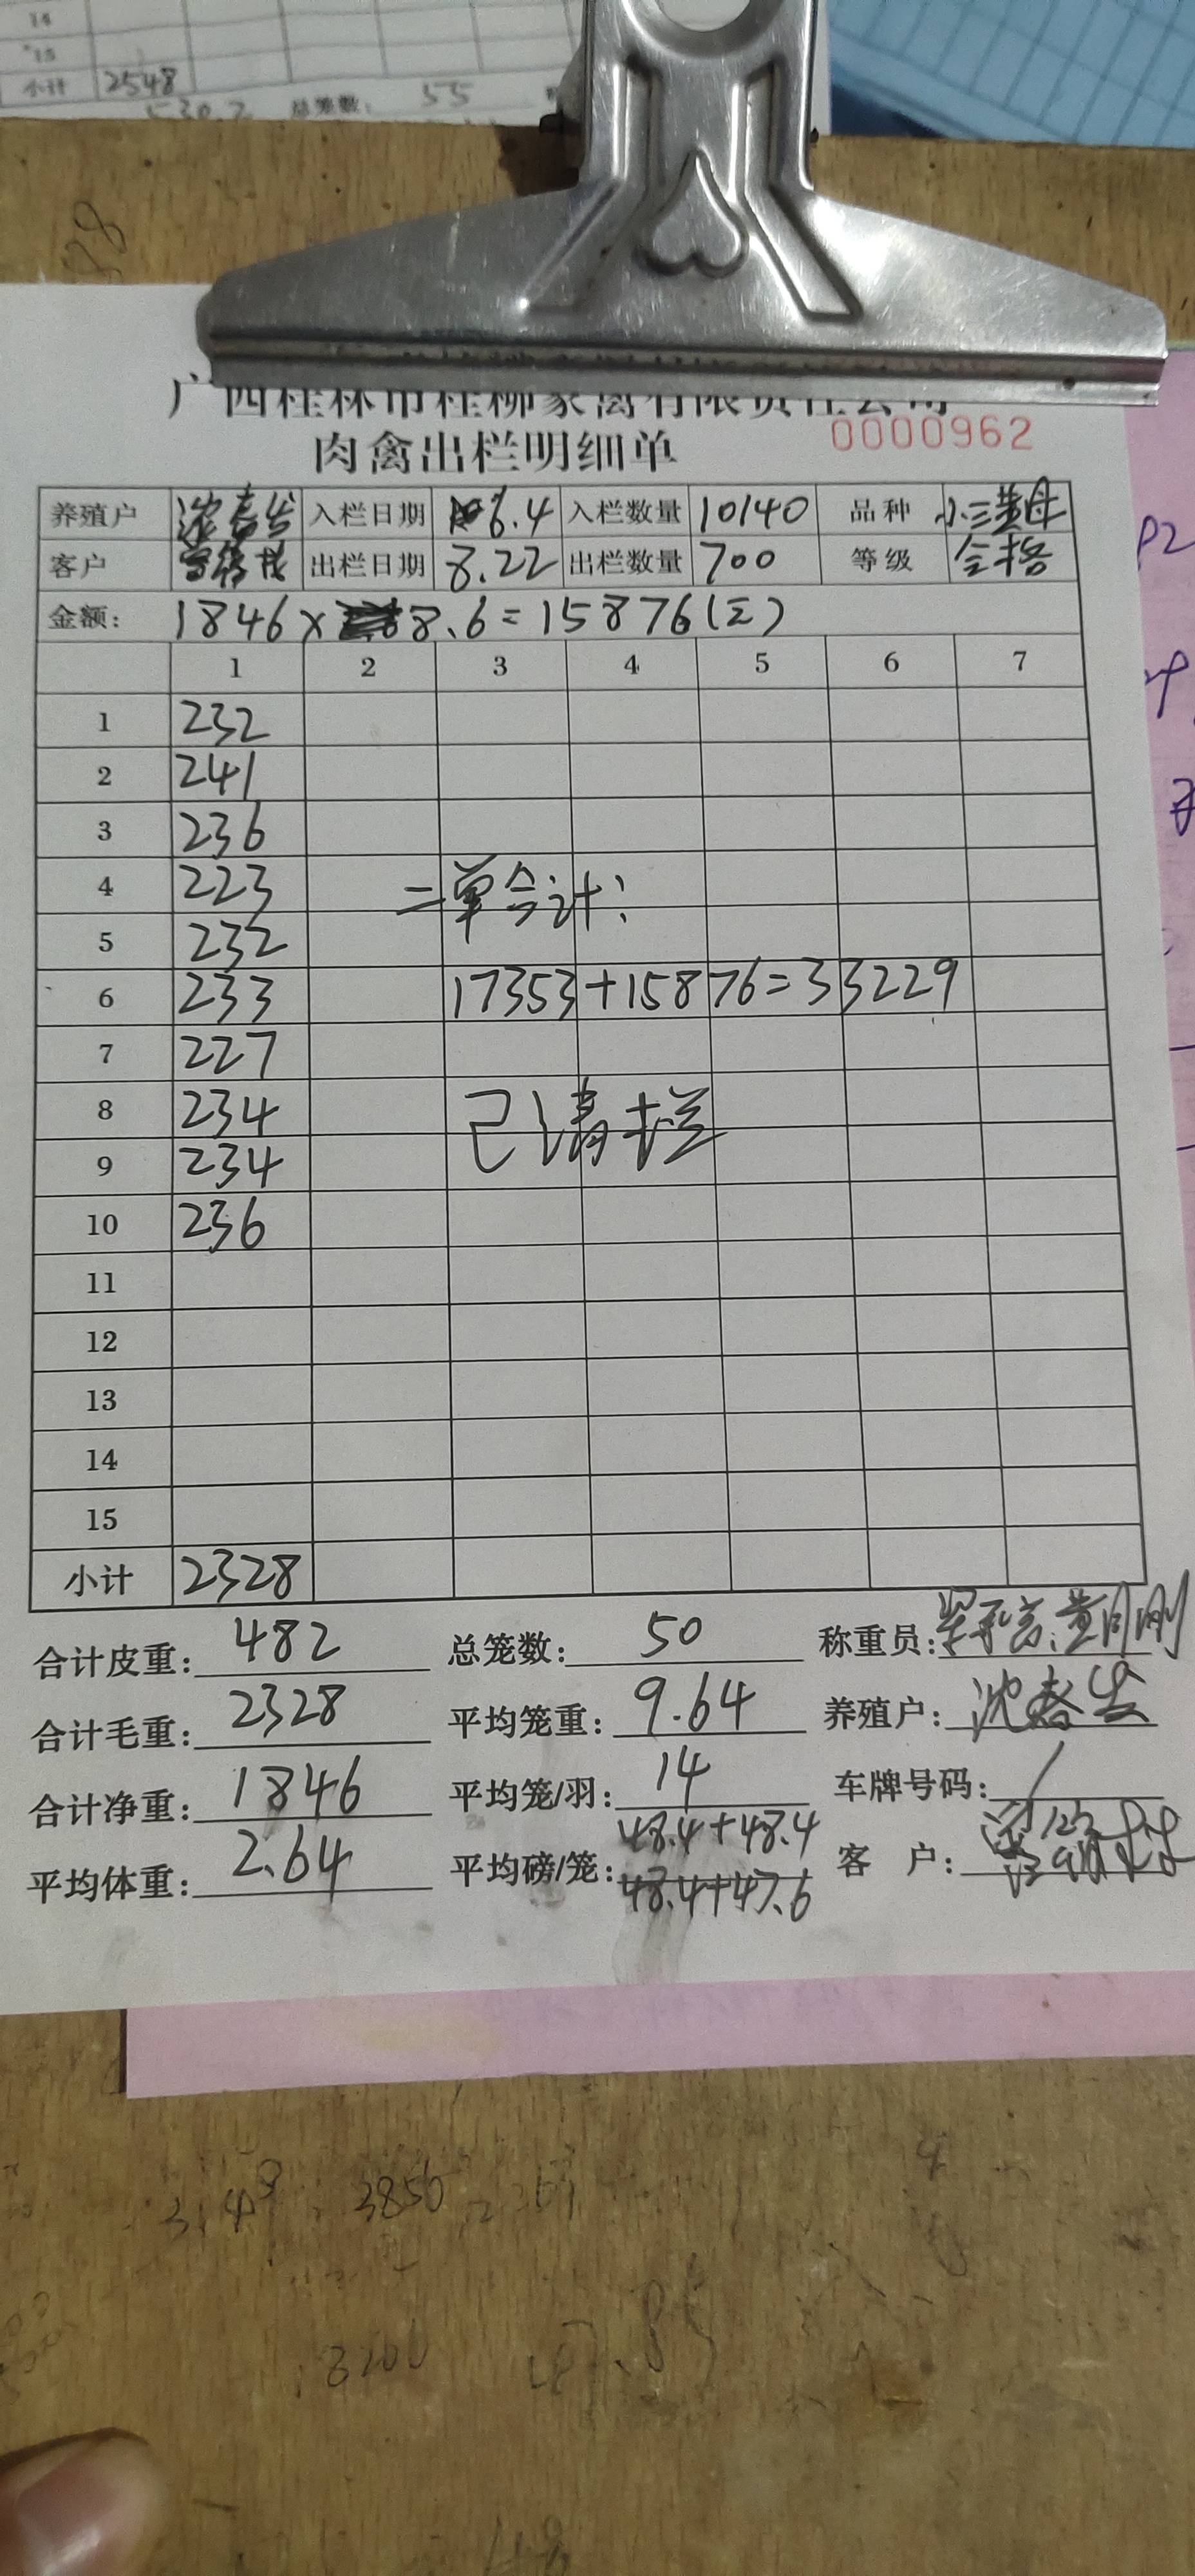 14
15
小计 2548
530.2 总笼数: 55
28
广西桂林市桂柳家禽有限责任公司
肉禽出栏明细单 0000962
养殖户 沈春发 入栏日期 6.4 入栏数量 10140 品种 小三黄母
客户 出栏日期 8.22 出栏数量 700 等级 合格
金额: 1846× 8.6=15876(元)
1 2 3 4 5 6 7
1 232
2 241
3 236
4 223 二单合计:
5 232
6 233 17353+15876=33229
7 227
8 234 已清栏
9 234
10 236
11
12
13
14
15
小计 2328
合计皮重: 482 总笼数: 50 称重员:
合计毛重: 2328 平均笼重: 9.64 养殖户: 沈春发
合计净重: 1846 平均笼/羽: 14 车牌号码: /
平均体重: 2.64 平均磅/笼: 48.4+48.4 客 户:
48.4+47.6
3850
3200